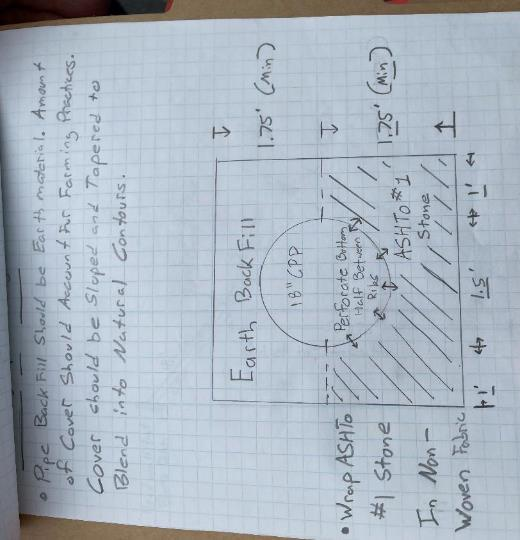 • Pipe Back Fill Should be Earth material. Amount
of Cover Should Account For Farming Practices.
Cover should be Sloped and Tapered to
Blend into Natural Contours.
1.75' (Min)
1.75' (Min)
Earth Back Fill
18" CPP
Perforate Bottom
Half Between
Ribs
ASHTO #1
Stone
1'
1.5'
1'
• Wrap ASHTO
#1 Stone
In Non-
Woven Fabric